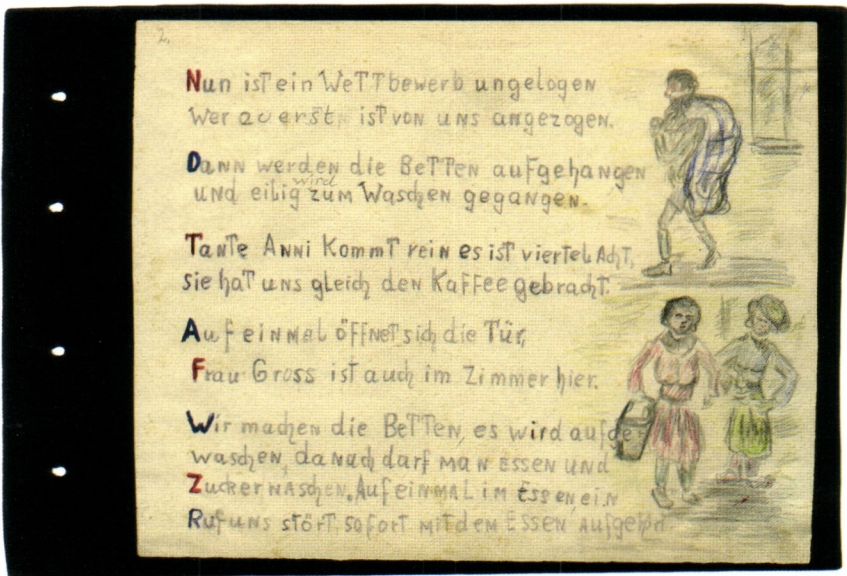 2.
Nun ist ein Wettbewerb ungelogen
Wer zuerst ist von uns angezogen.
Dann werden die Betten aufgehangen
wird
und eilig zum Waschen gegangen.
Tante Anni kommt rein es ist viertel Acht,
sie hat uns gleich den Kaffee gebracht.
Auf einmal öffnet sich die Tür,
Frau Gross ist auch im Zimmer hier.
Wir machen die Betten, es wird
waschen, danach darf man essen und
Zucker naschen. Auf einmal im Essen ein
Ruf uns stört, sofort mit dem Essen